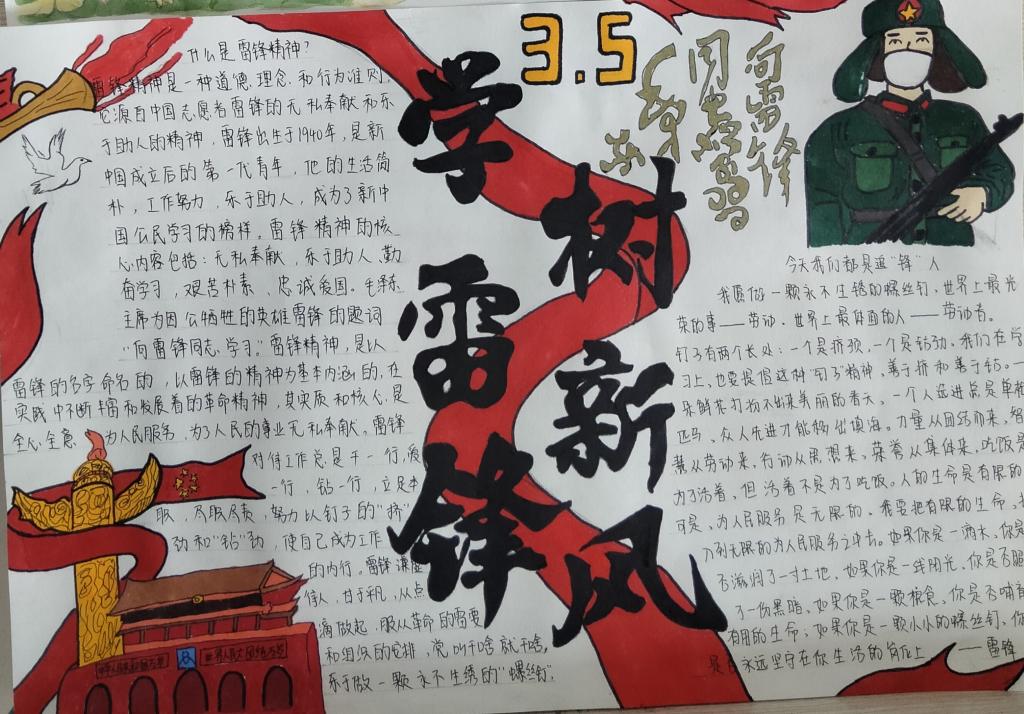 3.5
学雷锋
树新风
向雷锋
同志学习
什么是雷锋精神?
雷锋精神是一种道德、理念、和行为准则,
它源自中国志愿者雷锋的无私奉献和乐
于助人的精神,雷锋出生于1940年,是新
中国成立后的第一代青年,他的生活简
朴,工作努力,乐于助人,成为了新中
国公民学习的榜样。雷锋精神的核
心内容包括:无私奉献,乐于助人、勤
奋学习,艰苦朴素、忠诚爱国。毛泽东
主席为因公牺牲的英雄雷锋的题词
“向雷锋同志学习。”雷锋精神,是以
雷锋的名字命名的,以雷锋的精神为基本内涵的,在
实践中不断丰富和发展着的革命精神,其实质和核心是
全心全意为人民服务,为了人民的事业无私奉献。雷锋
对待工作总是干一行,爱
一行,钻一行,立足本
职,尽职尽责,努力以钉子的“挤”
劲和“钻”劲,使自己成为工作
的内行。雷锋谦虚
待人,甘于平凡,从点
滴做起,服从革命的需要
和组织的安排,党叫干啥就干啥,
乐于做一颗永不生锈的“螺丝钉”。
今天我们都是追“锋”人
我愿做一颗永不生锈的螺丝钉、世界上最光
荣的事——劳动、世界上最体面的人——劳动者。
钉子有两个长处:一个是挤劲,一个是钻劲。我们在学
习上,也要提倡这种“钉子”精神,善于挤和善于钻。一
朵鲜花打扮不出来美丽的春天,一个人先进总是单枪
匹马、众人先进才能移山填海。力量从团结而来,智
慧从劳动来,行动从思想来,荣誉从集体来,吃饭是
为了活着,但活着不是为了吃饭。人的生命是有限的
可是、为人民服务是无限的,我要把有限的生命,投
入到无限的为人民服务之中去。如果你是一滴水,你是
否滋润了一寸土地,如果你是一线阳光,你是否照
了一份黑暗,如果你是一颗粮食,你是否哺育
有用的生命,如果你是一颗小小的螺丝钉,你
是否永远坚守在你生活的岗位上 ——雷锋